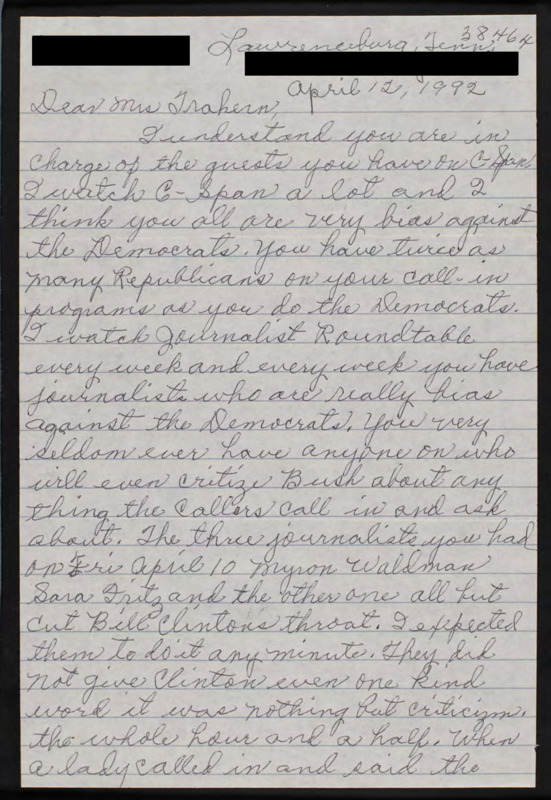 Lawrenceburg, Tenn. 38464
April 12, 1992
Dear Mrs Trahern,
I understand you are in
charge of the guests you have on C-Span.
I watch C-Span a lot and I
think you all are very bias against
the Democrats. You have twice as
many Republicans on your call-in
programs as you do the Democrats.
I watch Journalist Roundtable
every week and every week you have
journalists who are really bias
against the Democrats. You very
seldom ever have anyone on who
will even critize Bush about any
thing the callers call in and ask
about. The three journalists you had
on Fri April 10 Myron Waldman
Sara Fritz and the other one all but
cut Bill Clintons throat. I expected
them to do it any minute. They did
not give Clinton even one kind
word it was nothing but criticism.
the whole hour and a half. When
a lady called in and said the